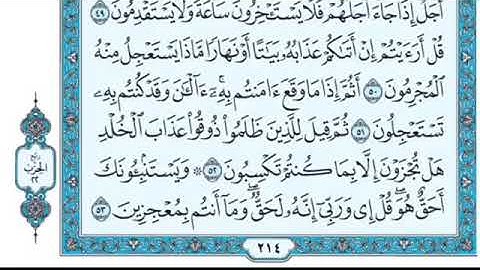 أَجَلٌ إِذَا جَآءَ أَجَلُهُمْ فَلَا يَسْتَـْٔخِرُونَ سَاعَةً وَلَا يَسْتَقْدِمُونَ ٤٩
قُلْ أَرَءَيْتُمْ إِنْ أَتَىٰكُمْ عَذَابُهُۥ بَيَـٰتًا أَوْ نَهَارًا مَّاذَا يَسْتَعْجِلُ مِنْهُ
ٱلْمُجْرِمُونَ ٥٠ أَثُمَّ إِذَا مَا وَقَعَ ءَامَنتُم بِهِۦٓ ۚ ءَآلْـَٔـٰنَ وَقَدْ كُنتُم بِهِۦ
تَسْتَعْجِلُونَ ٥١ ثُمَّ قِيلَ لِلَّذِينَ ظَلَمُوا۟ ذُوقُوا۟ عَذَابَ ٱلْخُلْدِ
هَلْ تُجْزَوْنَ إِلَّا بِمَا كُنتُمْ تَكْسِبُونَ ٥٢ ۞ وَيَسْتَنۢبِـُٔونَكَ
أَحَقٌّ هُوَ ۖ قُلْ إِى وَرَبِّىٓ إِنَّهُۥ لَحَقٌّ ۖ وَمَآ أَنتُم بِمُعْجِزِينَ ٥٣
ربع
الحزب
٢٢
٢١٤